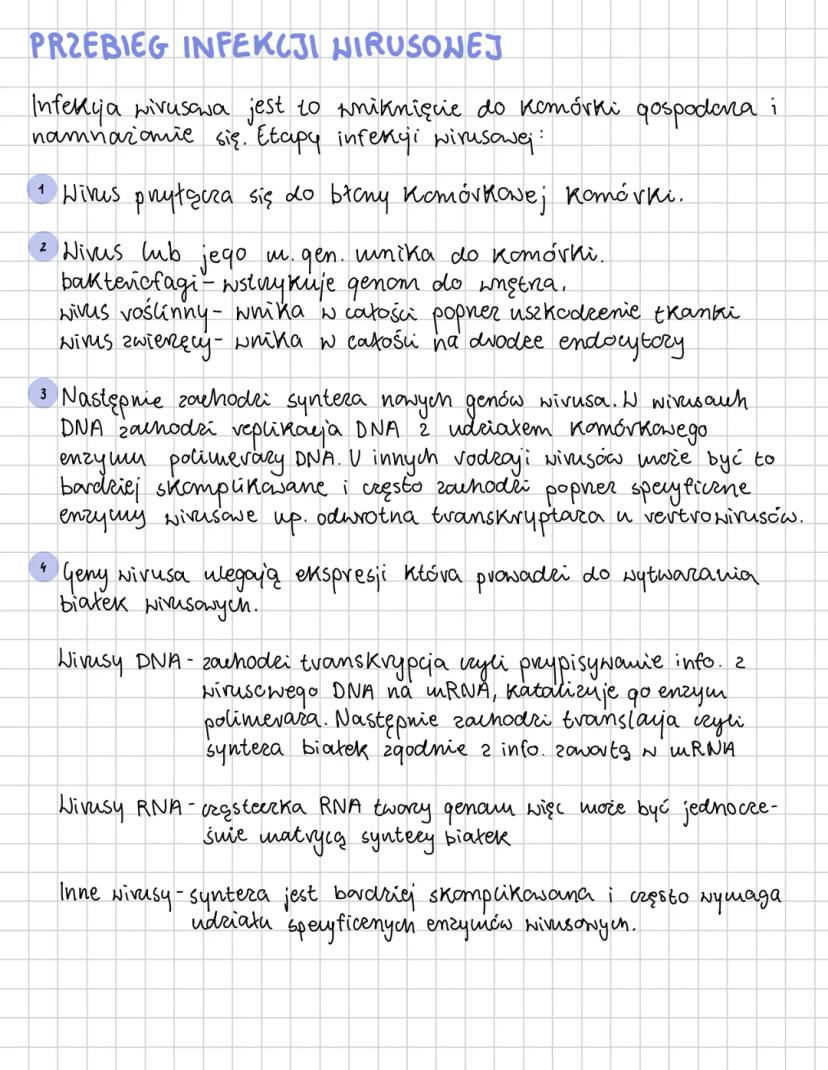 PRZEBIEG INFEKCJI WIRUSOWEJ
Infekcja wirusowa jest to wniknięcie do komórki gospodarza i
namnażanie się. Etapy infekcji wirusowej:
1 Wirus przyłącza się do błony komórkowej komórki.
2 Wirus lub jego m. gen. wnika do komórki.
bakteriofagi - wstrzykuje genom do wnętrza,
wirus roślinny - wnika w całości poprzez uszkodzenie tkanki
wirus zwierzęcy - wnika w całości na drodze endocytozy
3 Następnie zachodzi synteza nowych genów wirusa. W wirusach
DNA zachodzi replikacja DNA z udziałem komórkowego
enzymu polimerazy DNA. U innych rodzaji wirusów może być to
bardziej skomplikowane i często zachodzi poprzez specyficzne
enzymy wirusowe np. odwrotna transkryptaza u rertrowirusów.
4 Geny wirusa ulegają ekspresji która prowadzi do wytwarzania
białek wirusowych.
Wirusy DNA - zachodzi transkrypcja czyli przypisywanie info. z
wirusowego DNA na mRNA, katalizuje go enzym
polimeraza. Następnie zachodzi translacja czyli
synteza białek zgodnie z info. zawartą w mRNA
Wirusy RNA - cząsteczka RNA tworzy genom więc może być jednocze-
śnie matrycą syntezy białek
Inne wirusy - synteza jest bardziej skomplikowana i często wymaga
udziału specyficznych enzymów wirusowych.